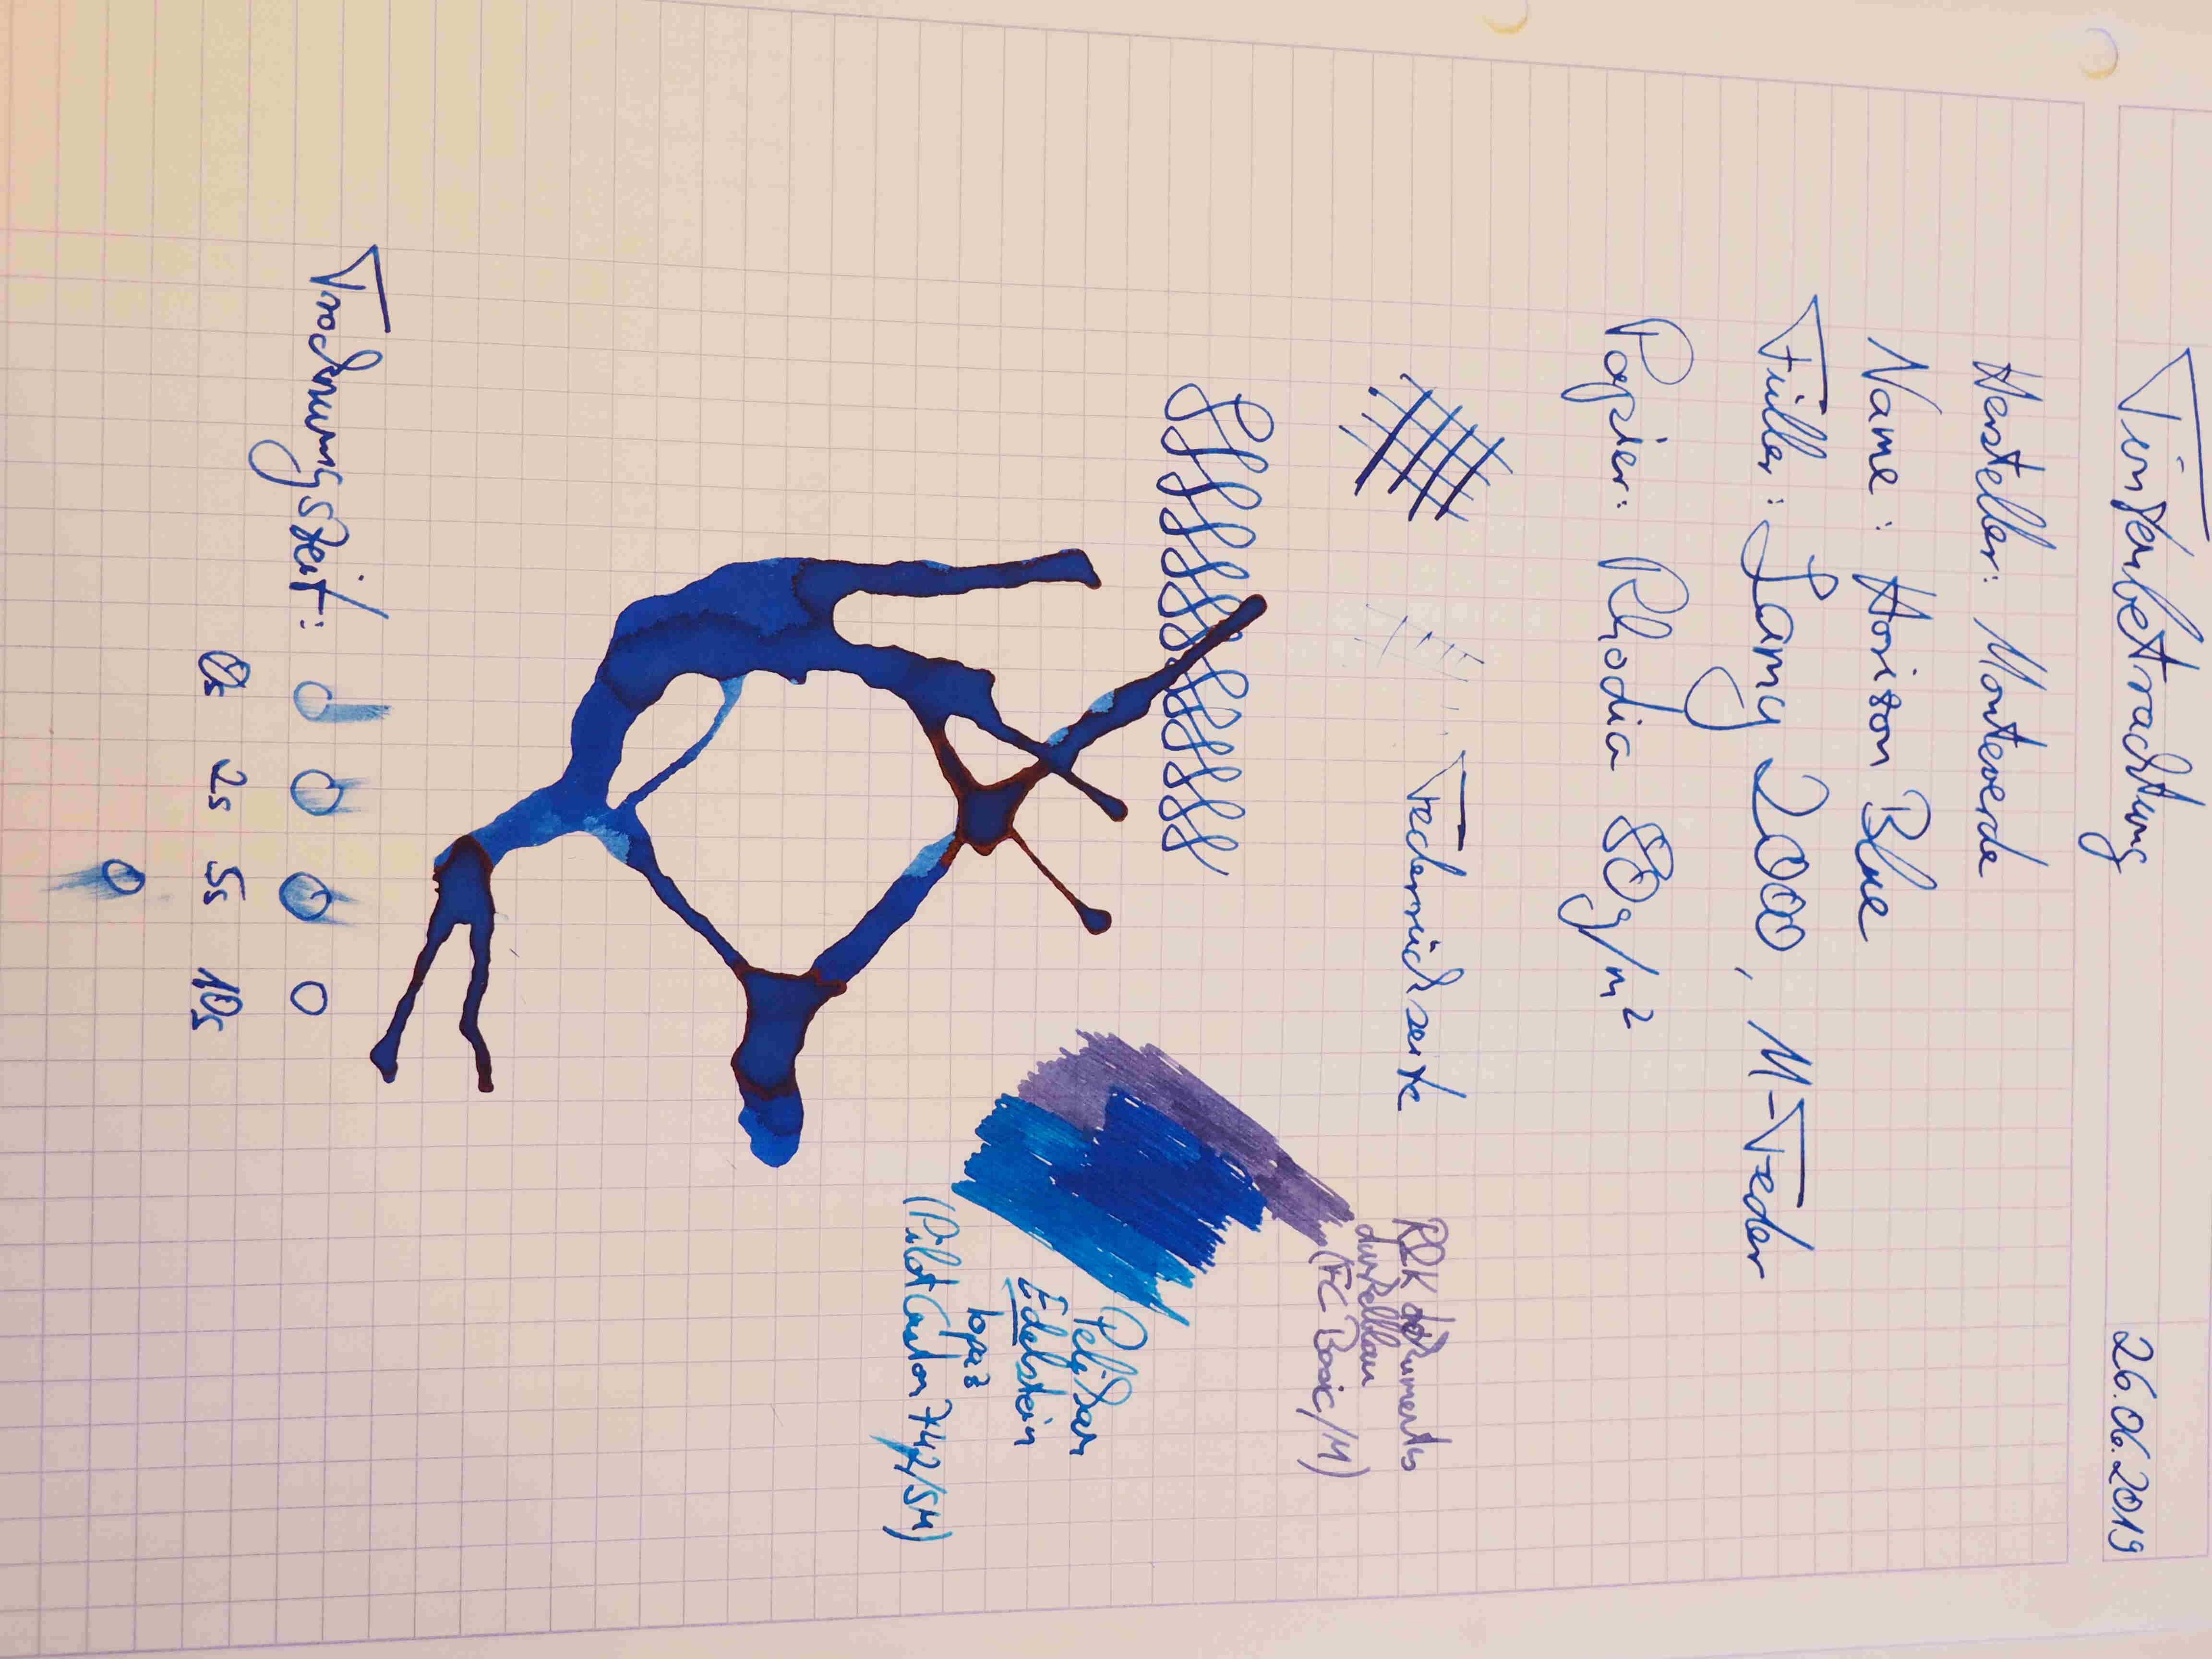 Tintenbetrachtung
26.06.2019
Hersteller: Monteverde
Name: Horizon Blue
Füller: Lamy 2000, M-Feder
Papier: Rhodia 80g/m²
Federrückseite
R&K dokumentus
dunkelblau
(FC Basic/M)
Pelikan
Edelstein
topaz
(Pilot Custom 742/SM)
Trocknungszeit:
0s 2s 5s 10s